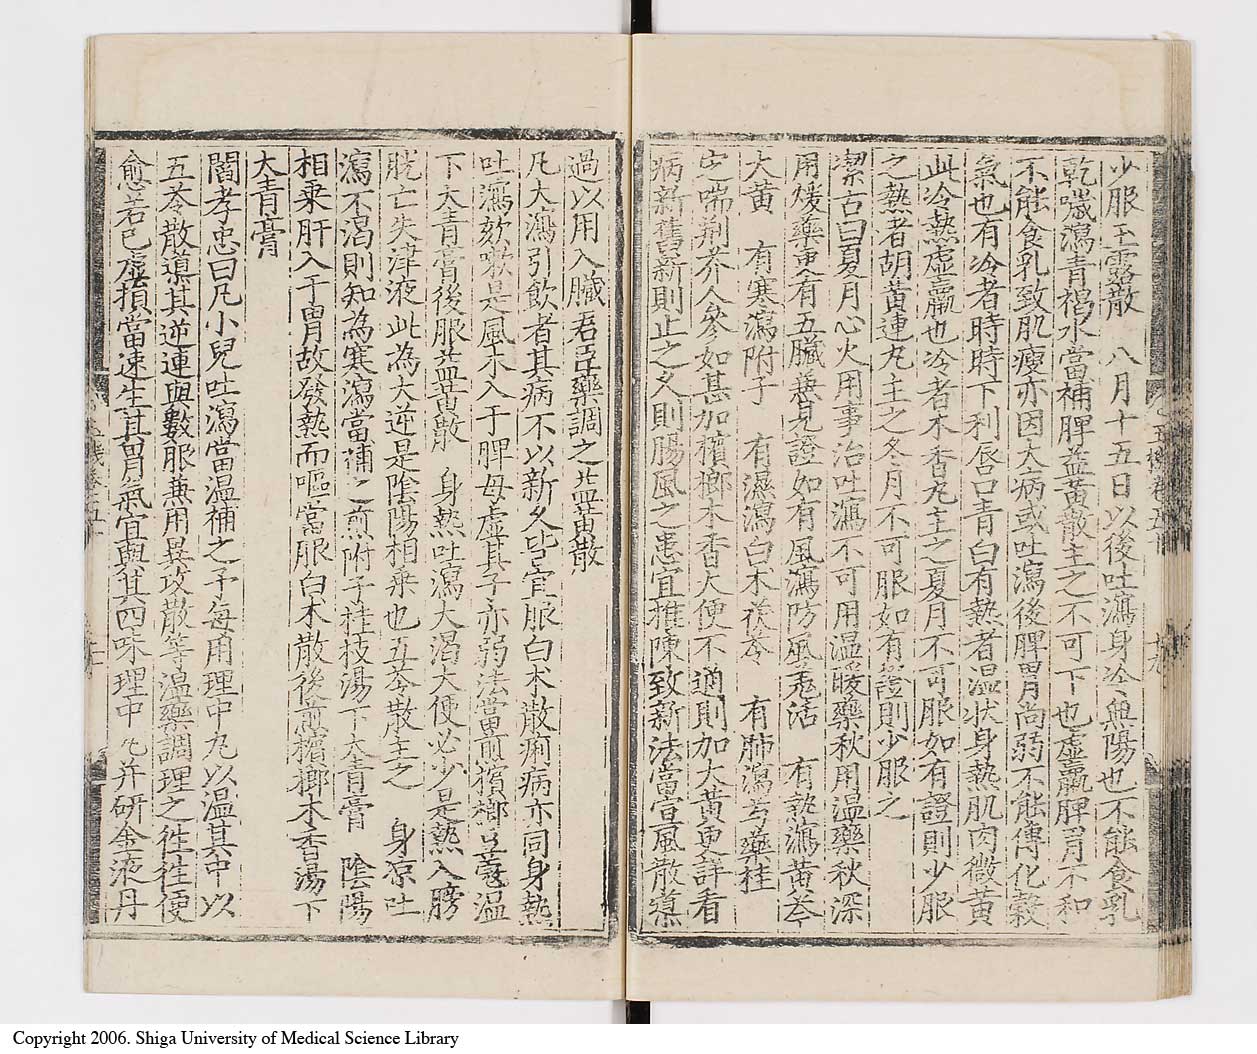 少服玉露散　八月十五日以後吐瀉身冷無陽也不能食乳
乾噦瀉青褐水當補脾益黃散主之不可下也虛羸脾胃不和
不能食乳致肌瘦亦因大病或吐瀉後脾胃尚弱不能傳化穀
氣也有冷者時時下利唇口青白有熱者温状身熱肌肉微黃
此冷熱虛羸也冷者木香丸主之夏月不可服如有證則少服
之熱者胡黃連丸主之冬月不可服如有證則少服之
潔古曰夏月心火用事治吐瀉不可用温暖藥秋用温藥秋深
用煖藥更有五臟兼見證如有風瀉防風羗活　有熱瀉黃芩
大黃　有寒瀉附子　有濕瀉白术茯苓　有肺瀉芍藥桂
定喘荆芥人參如甚加檳榔木香大便不通則加大黃更詳看
病新舊新則止之久則腸風之患宜推陳致新法當宣風散導
過以用入臟君臣藥調之益黃散
凡大瀉引飲者其病不以新久皆宜服白术散痢病亦同身熱
吐瀉欬嗽是風木入于脾母虛其子亦弱法當煎檳榔豆蔻湯
下大青膏後服益黃散　身熱吐瀉大渴大便必少是熱入膀
胱亡失津液此為大逆是陰陽相乘也五苓散主之　身凉吐
瀉不渴則知為寒瀉當補之煎附子桂枝湯下大青膏　陰陽
相乘肝入于胃故發熱而嘔當服白术散後煎檳榔木香湯下
大青膏
閻孝忠曰凡小兒吐瀉當温補之予每用理中丸以温其中以
五苓散導其逆連與數服兼用異攻散等温藥調理之徃徃便
愈若已虛損當速生其胃氣宜與其四味理中丸并研金液丹
Copyright 2006. Shiga University of Medical Science Library